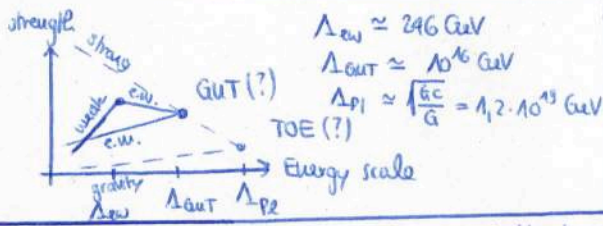 strength
strong
weak
e.w.
e.m.
GUT (?)
TOE (?)
gravity
Energy scale
Λew
ΛGUT
ΛPl
Λew ≃ 246 GeV
ΛGUT ≃ 10^16 GeV
ΛPl ≃ √(ħc/G) = 1,2·10^19 GeV